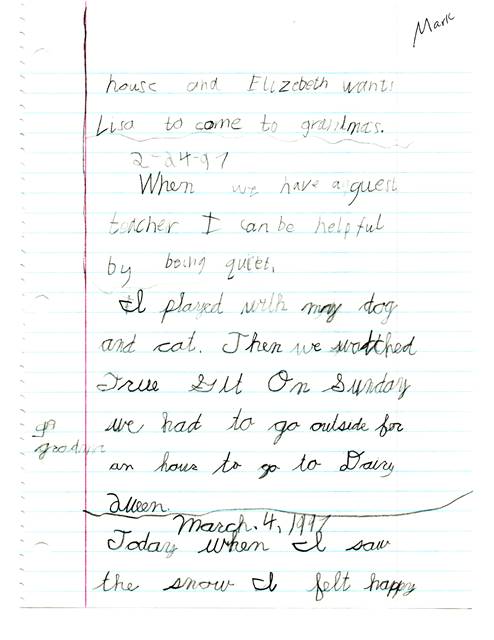 Mark
house and Elizebeth wants
Lisa to come to grandmas.
2-24-97
When we have a guest
teacher I can be helpful
by being quiet.
I played with my dog
and cat. Then we watched
True On Sunday
we had to go outside for
an hour to go to Dairy
Queen.
March. 4, 1997
Today when I saw
the snow I felt happy